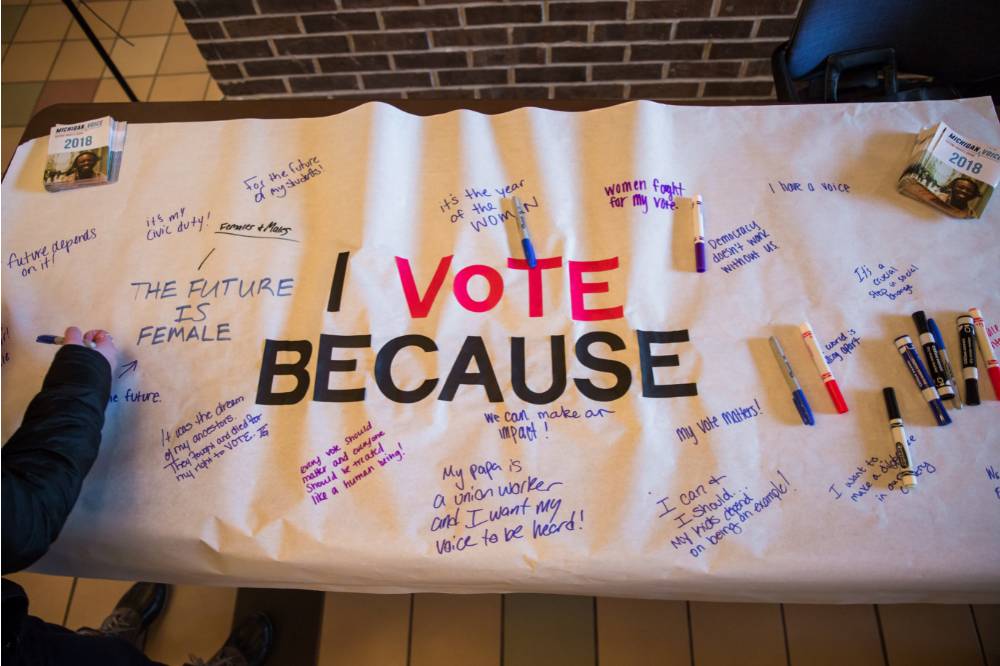 MICHIGAN VOICE
2018
MICHIGAN VOICE
2018
For the future
of my students!
it's my
civic duty!
Females & Males
future depends
on it!
THE FUTURE
IS
FEMALE
it's the year
of the
WOMAN
women fought
for my vote.
I have a voice
Democracy
doesn't work
without us.
It's a
crucial
step in social
change
I VOTE
BECAUSE
world is
apart
the future.
It was the dream
of my ancestors.
They fought and died for
my right to VOTE.
every vote should
matter and everyone
should be treated
like a human being!
we can make an
impact!
My vote matters!
My papa is
a union worker
and I want my
voice to be heard!
I can &
I should...
My kids depend
on being an example!
I want to
make a
in